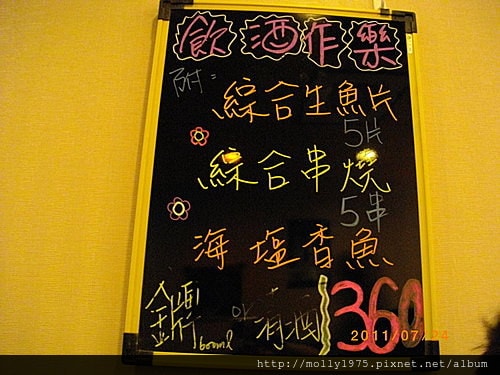 飲酒作樂
附：
綜合生魚片
5片
綜合串燒
5串
海塩香魚
金牌 600ml or 清酒 360
2011/07/24
http://molly1975.pixnet.net/album